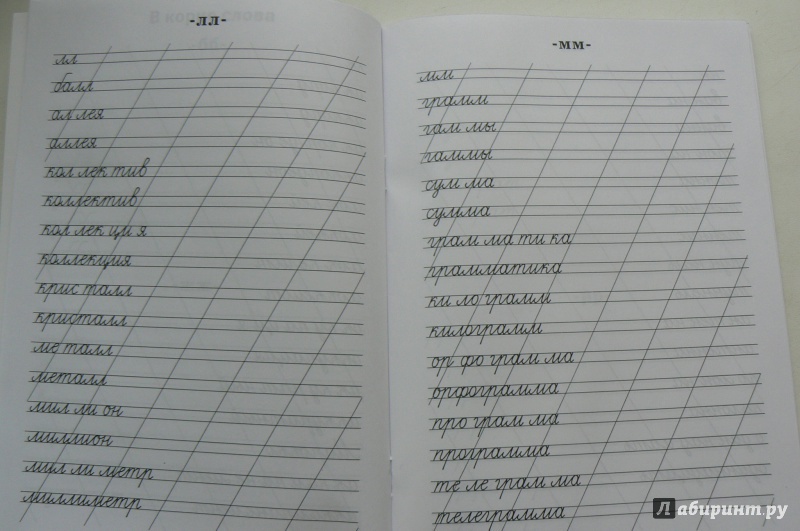 -лл-
лл
балл
ал лея
аллея
кол лек тив
коллектив
кол лек ци я
коллекция
крис талл
кристалл
ме талл
металл
мил ли он
миллион
мил ли метр
миллиметр
-мм-
мм
грамм
гам мы
гаммы
сум ма
сумма
грам ма ти ка
грамматика
ки ло грамм
килограмм
ор фо грам ма
орфограмма
про грам ма
программа
те ле грам ма
телеграмма
Лабиринт.ру